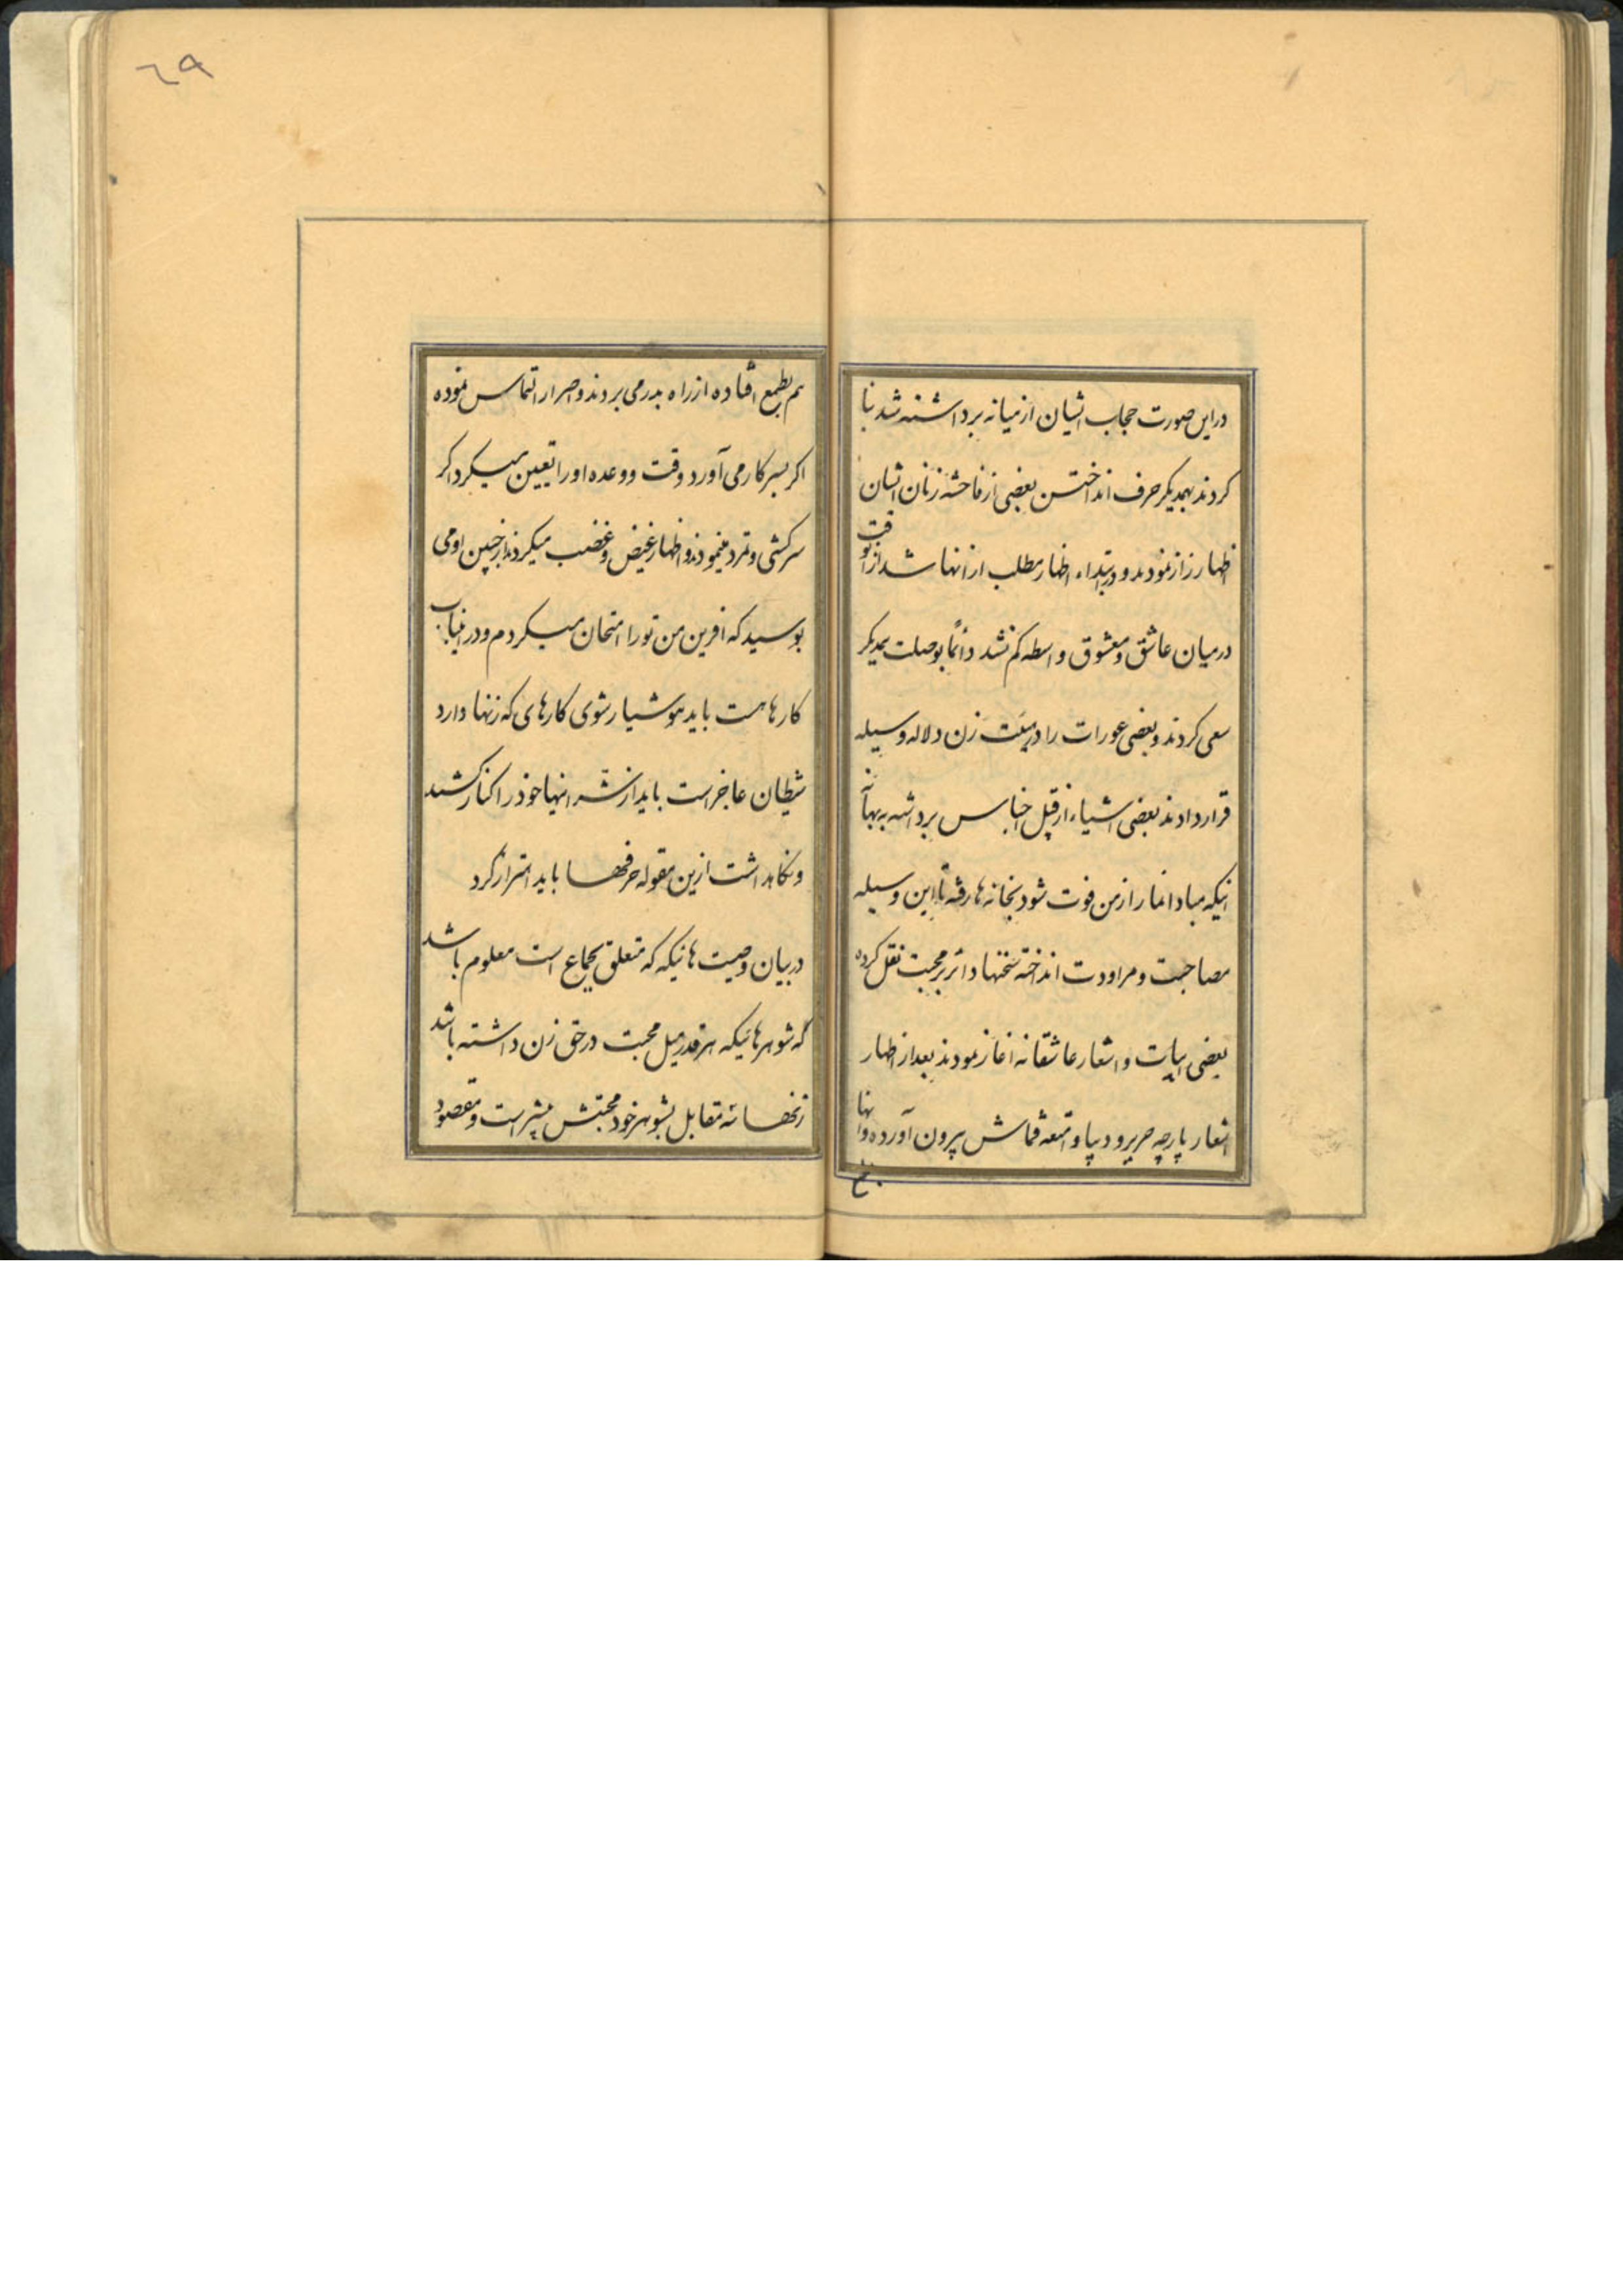 ۶۹
در این صورت حجاب ایشان از میانه برداشته شد بنا
کردند بهمدیکر حرف انداختن بعضی از فاحشه زنان ایشان
اظهار راز نمودند و در ابتداء اظهار مطلب از انها شد از انوقت
در میان عاشق و معشوق واسطه کم نشد دائما بوصلت همدیکر
سعی کردند و بعضی عورات را در هیئت زن دلاله وسیله
قرار دادند بعضی اشیاء از قبیل اجناس برداشته به بهانه
اینکه مبادا نماز از من فوت شود بخانه ها رفته با این وسیله
مصاحبت و مراودت انداخته سخنها دائر بر محبت نقل کرده
بعضی ابیات و اشعار عاشقانه اغاز نمودند بعد از اظهار
اشعار پارچه حریر و دیبا و امتعه قماش بیرون آورده و انها
هم
هم بطمع افتاده از راه بدر می بردند و اصرار التماس نموده
اکر بسر کار می آورد وقت و وعده او را تعیین میکرد اکر
سرکشی و تمرد مینمودند و اظهار غیض و غضب میکردند از جبین او می
بوسید که افرین من تو را امتحان میکردم و در اینباب
کارها هست باید هوشیار شوی کارهای که زنها دارد
شیطان عاجز است باید از شر اینها خود را کنار کشید
و نکاهداشت ازین مقوله حرفها باید احتراز کرد
در بیان وصیت هائیکه که متعلق بجماع است معلوم باشد
که شوهرهائیکه هر قدر میل محبت در حق زن داشته باشد
زنها مقابل بشوهر خود محبتش بیشتر است و مقصود